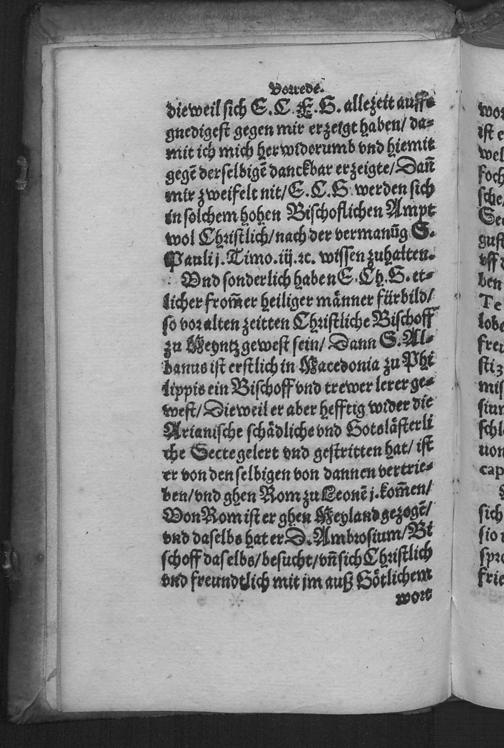 Vorrede.
dieweil sich E. C. F. G. allezeit auffs
gnedigest gegen mir erzeigt haben/ da⸗
mit ich mich herwiderumb vnd hiemit
gegē derselbigē danckbar erzeigte/ Dañ
mir zweifelt nit/ E. C. G. werden sich
in solchem hohen Bischoflichen Ampt
wol Christlich/ nach der vermanūg S.
Pauli j. Timo. iij. ꝛc. wissen zuhalten.
Vnd sonderlich haben E. Ch. G. et⸗
licher from̄er heiliger männer fürbild/
so vor alten zeitten Christliche Bischoff
zu Meyntz gewest sein/ Dann S. Al⸗
banus ist erstlich in Macedonia zu Phi
lippis ein Bischoff vnd trewer lerer ge⸗
west/ Dieweil er aber hefftig wider die
Arianische schädliche vnd Gotslästerli
che Secte gelert vnd gestritten hat/ ist
er von denselbigen von dannen vertrie⸗
ben/ vnd ghen Rom zu Leonē j. kom̄en/
Von Rom ist er ghen Meyland gezogē/
vnd daselbs hat er D. Ambrosium/ Bi
schoff daselbs/ besucht/ vñ sich Christlich
vnd freundtlich mit jm auß Götlichem
wort